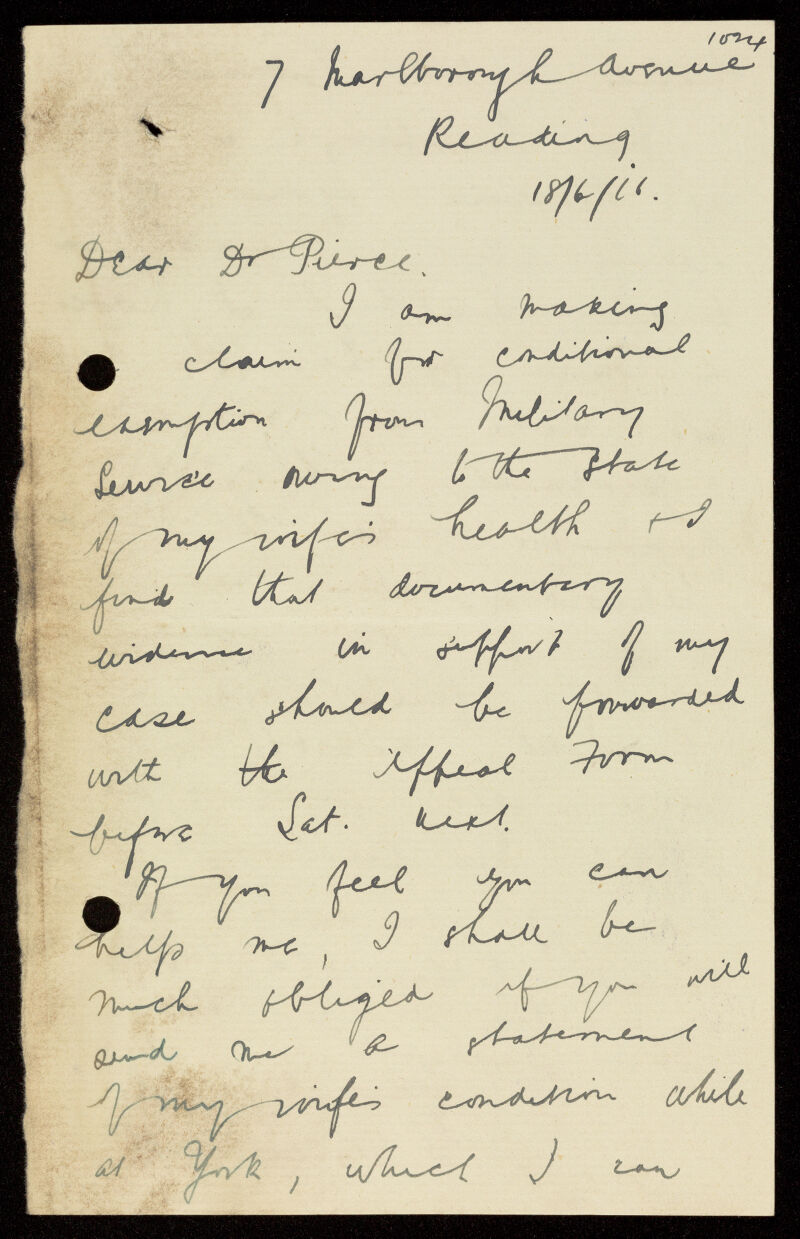 1024
7 Marlborough Avenue
Reading
18/6/16.
Dear Dr Pierce.
I am making
claim for conditional
exemption from Military
Service owing to the state
of my wife's health & I
find that documentary
evidence in support of my
case should be forwarded
with the Appeal Form
before Sat. next.
If you feel you can
help me, I shall be
much obliged if you will
send me a statement
of my wife's condition while
at York, which I can